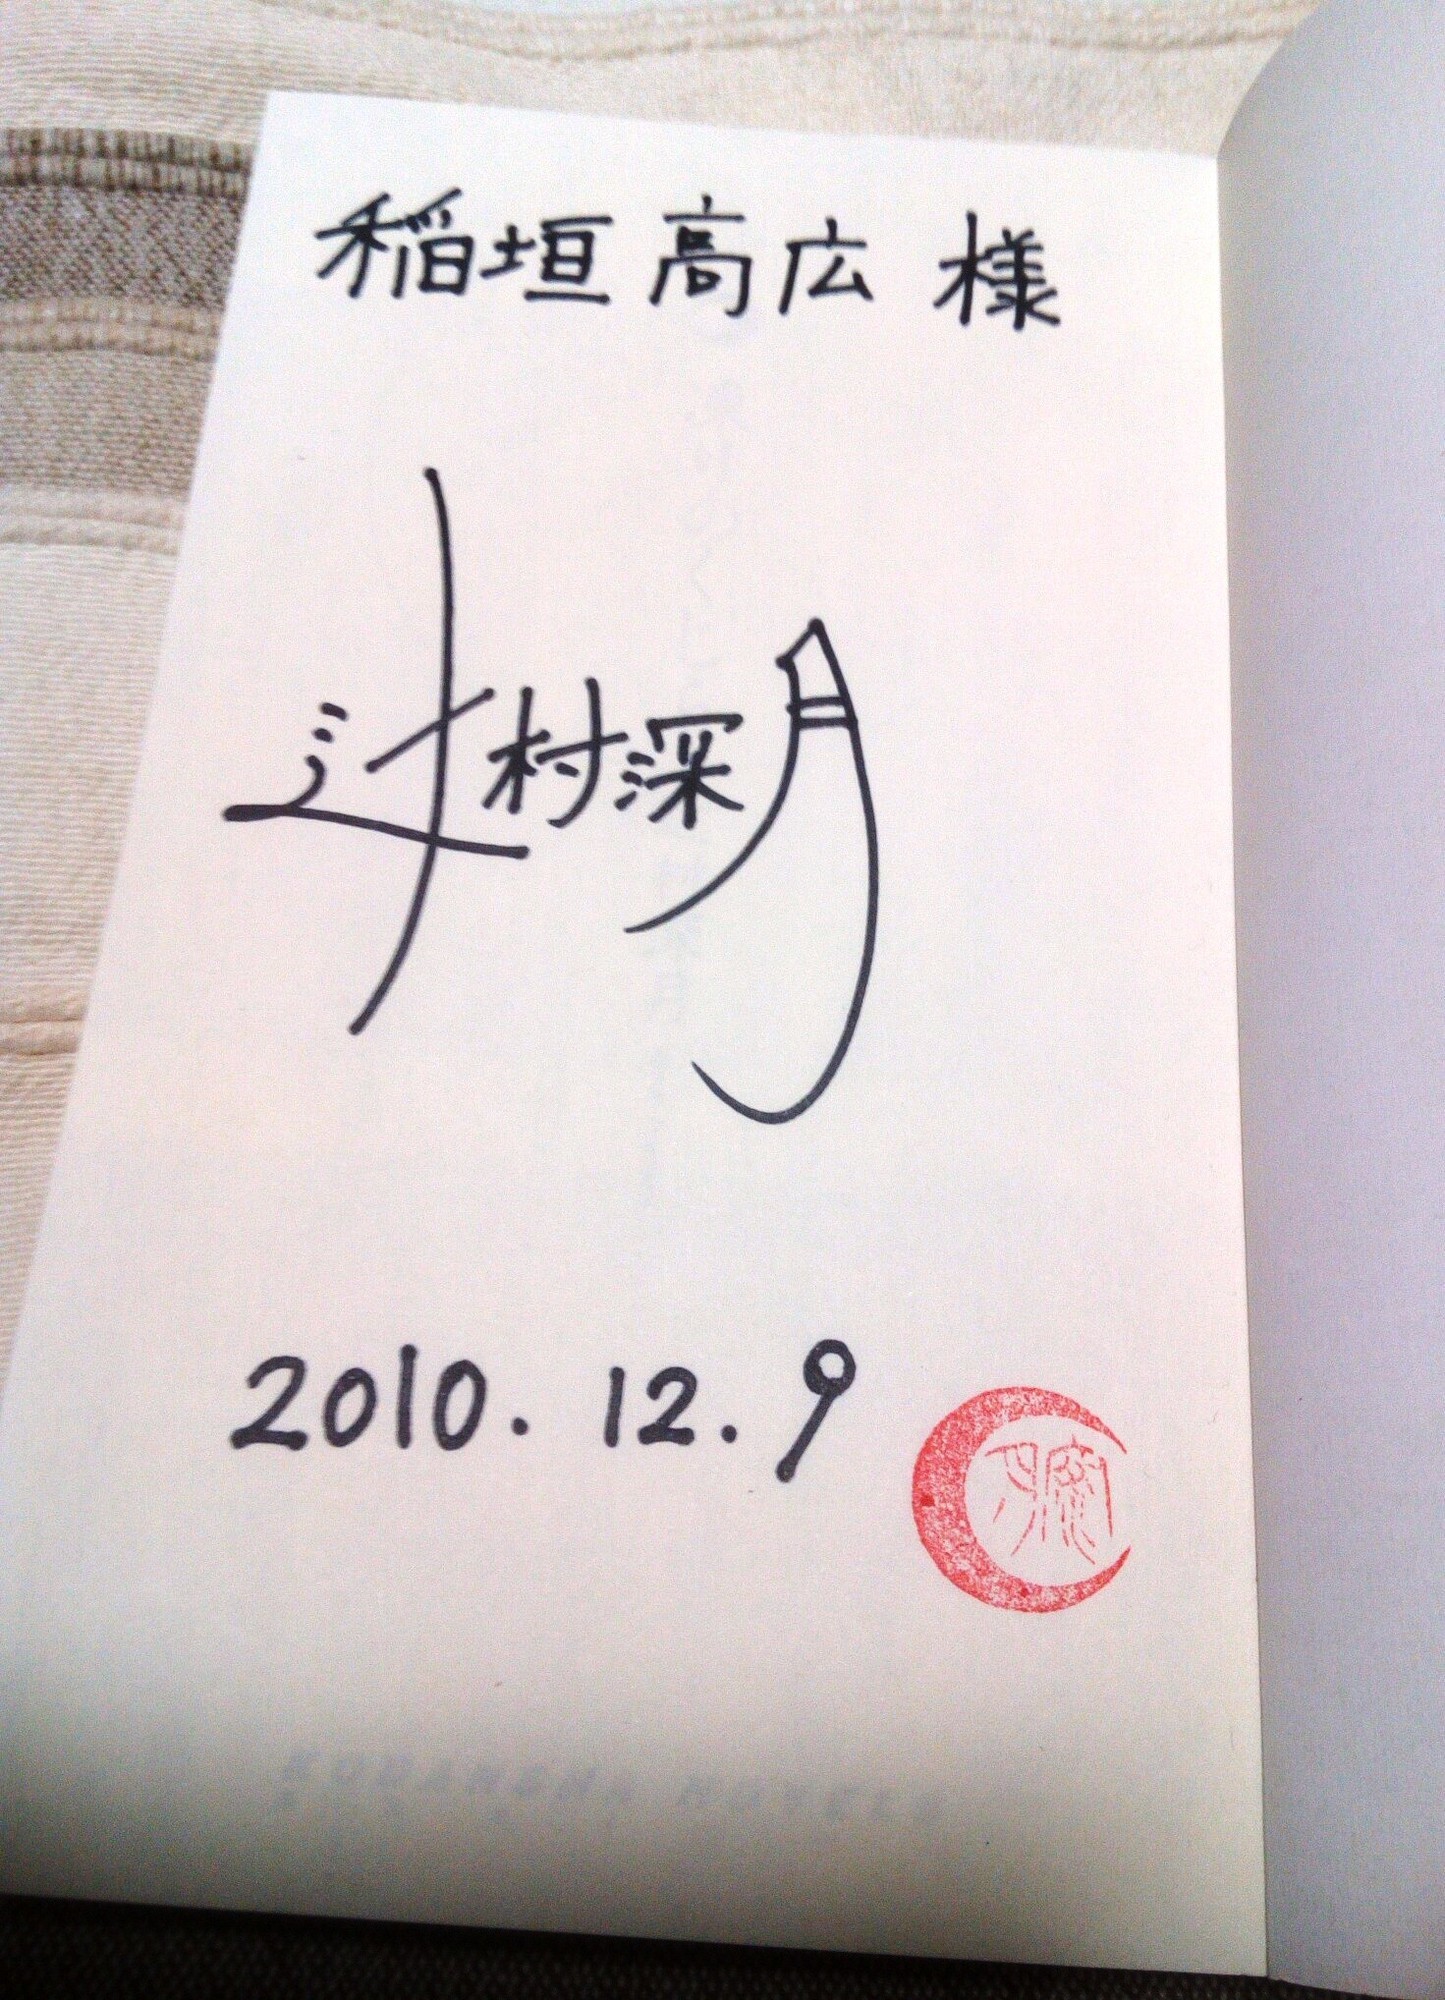 稲垣高広 様
辻村深月
2010.12.9
KODANSHA NOVELS